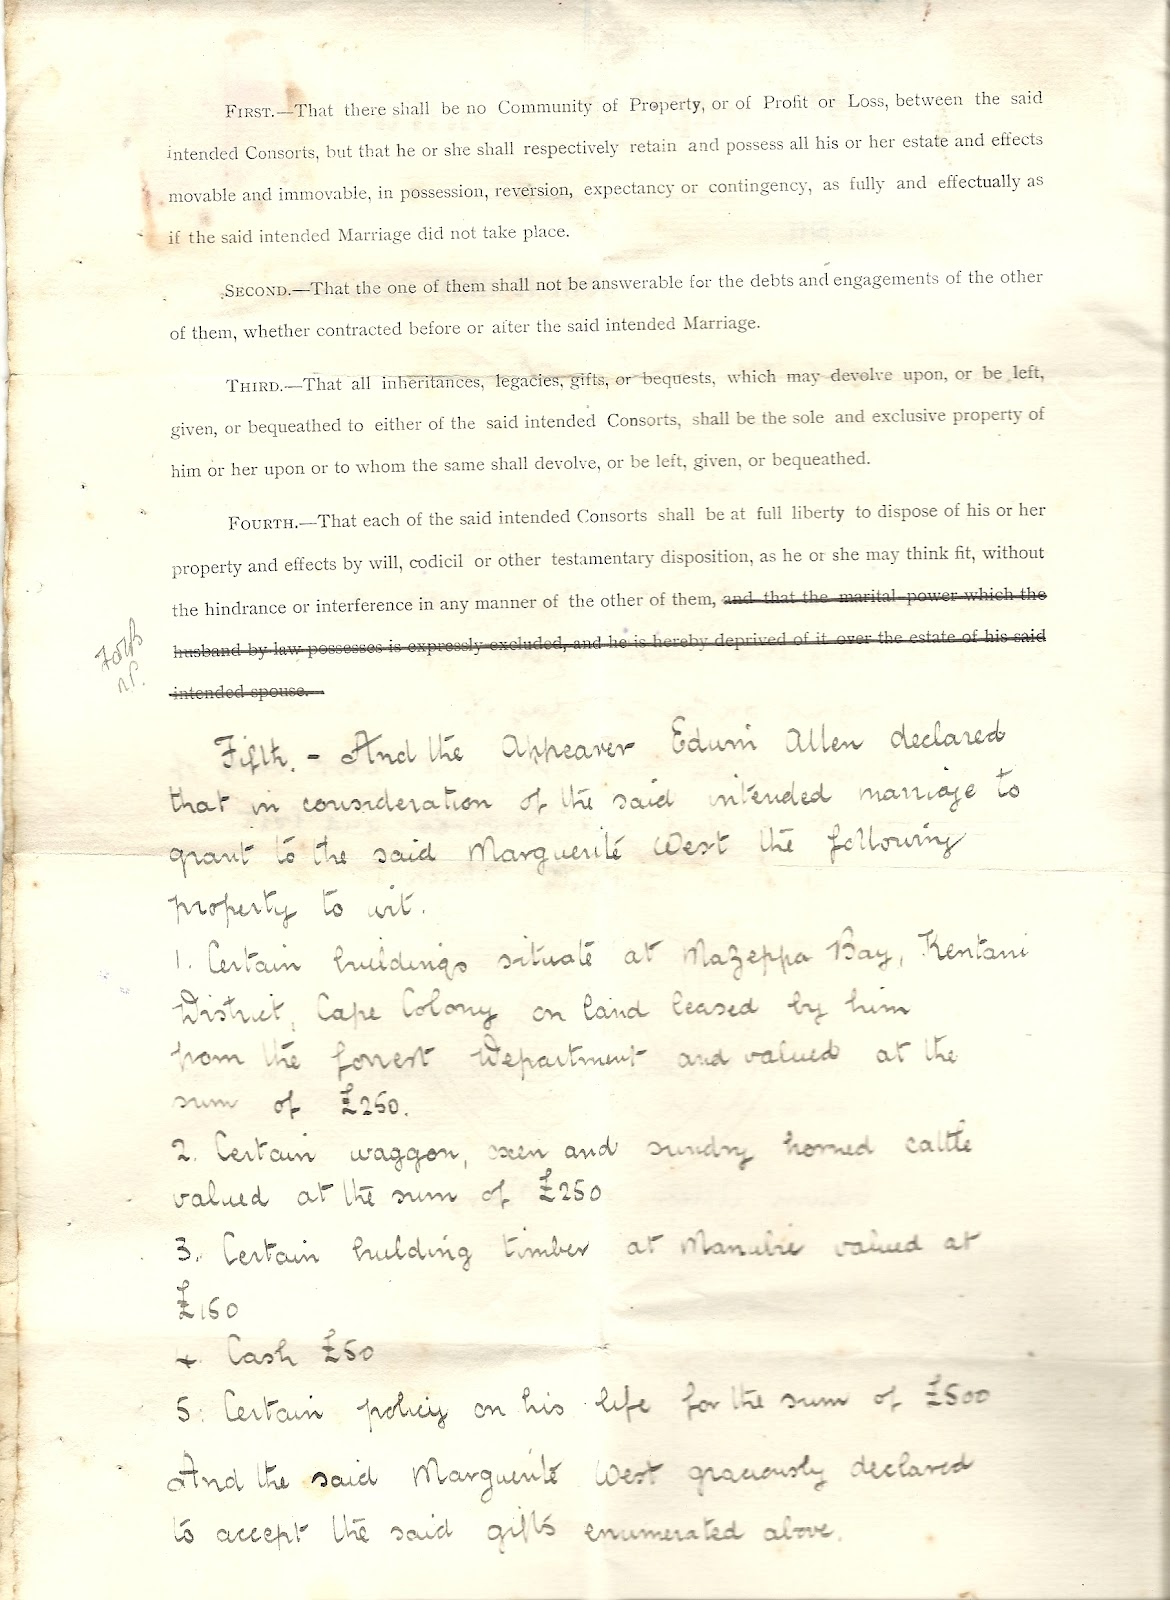 FIRST.—That there shall be no Community of Property, or of Profit or Loss, between the said
intended Consorts, but that he or she shall respectively retain and possess all his or her estate and effects
movable and immovable, in possession, reversion, expectancy or contingency, as fully and effectually as
if the said intended Marriage did not take place.
SECOND.—That the one of them shall not be answerable for the debts and engagements of the other
of them, whether contracted before or after the said intended Marriage.
THIRD.—That all inheritances, legacies, gifts, or bequests, which may devolve upon, or be left,
given, or bequeathed to either of the said intended Consorts, shall be the sole and exclusive property of
him or her upon or to whom the same shall devolve, or be left, given, or bequeathed.
FOURTH.—That each of the said intended Consorts shall be at full liberty to dispose of his or her
property and effects by will, codicil or other testamentary disposition, as he or she may think fit, without
the hindrance or interference in any manner of the other of them, and that the marital power which the
husband by law possesses is expressly excluded, and he is hereby deprived of it over the estate of his said
intended spouse.—
Fifth. - And the Appearer Edwin Allen declared
that in consideration of the said intended marriage to
grant to the said Marguerite West the following
property to wit.
1. Certain buildings situate at Mazeppa Bay, Kentani
District, Cape Colony on land leased by him
from the forrest Department and valued at the
sum of £250.
2. Certain waggon, oxen and sundry horned cattle
valued at the sum of £250
3. Certain building timber at Manubie valued at
£150
4. Cash £50
5. Certain policy on his life for the sum of £500
And the said Marguerite West graciously declared
to accept the said gifts enumerated above.